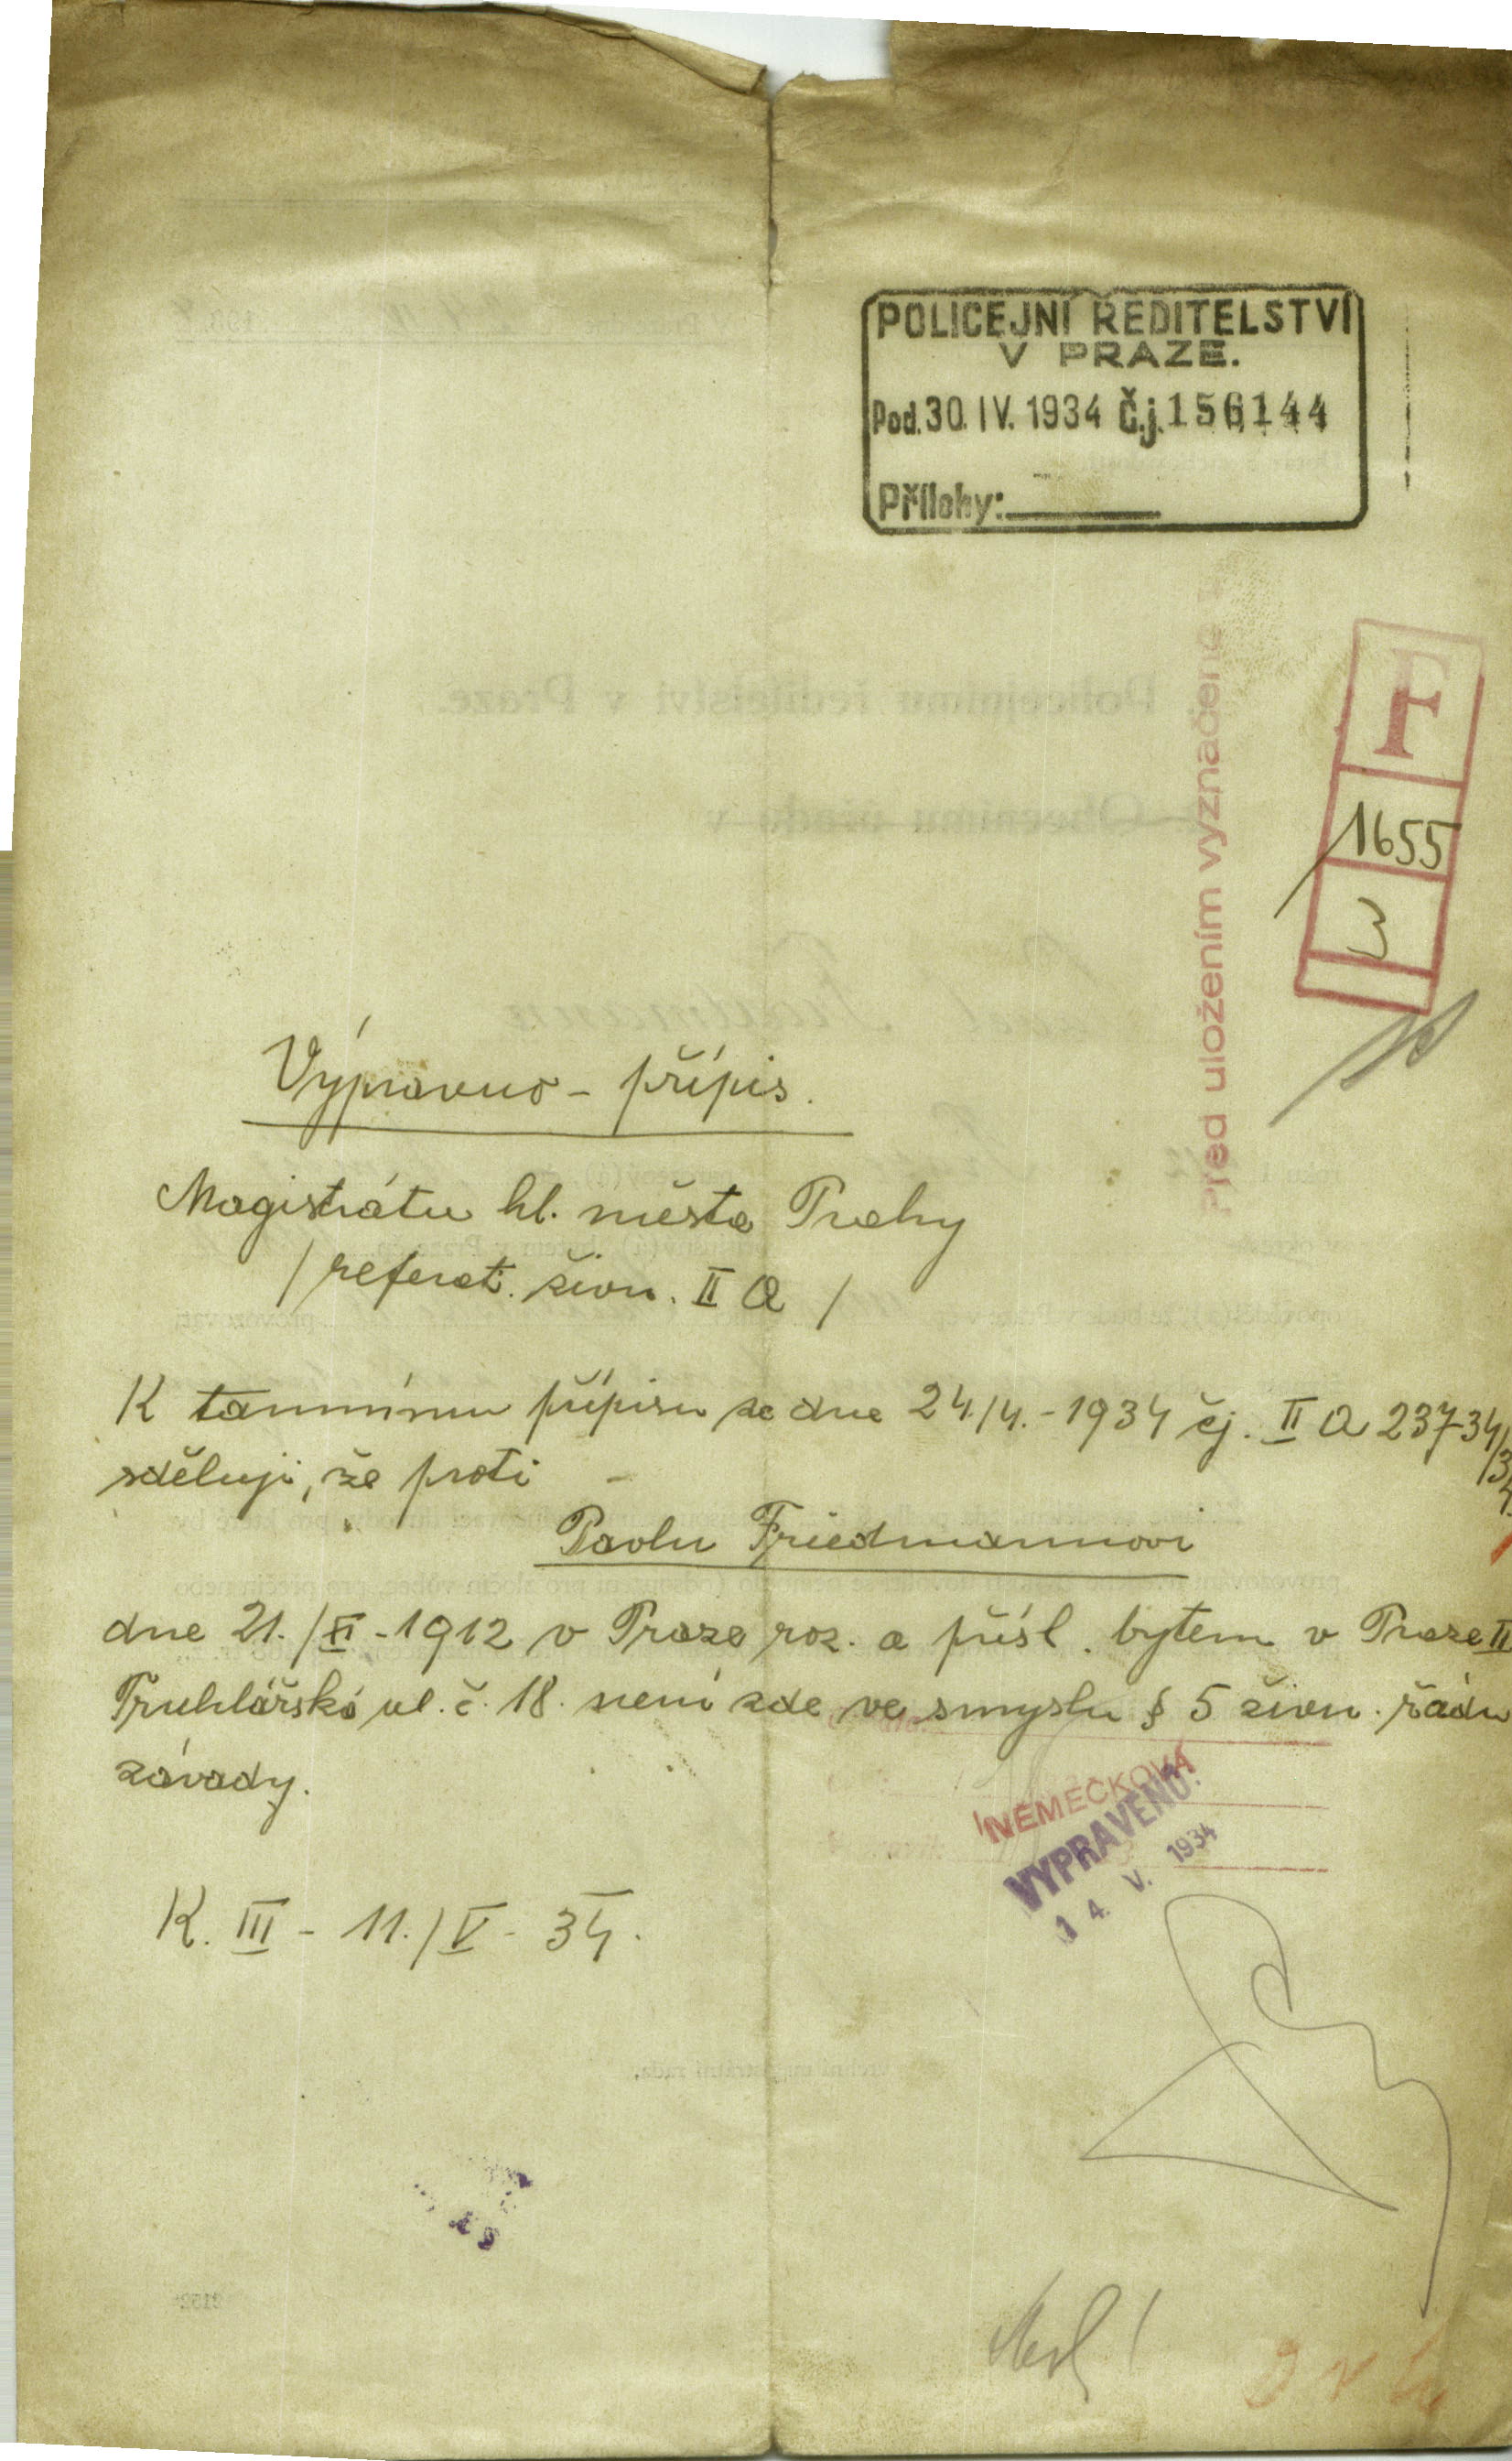 POLICEJNÍ ŘEDITELSTVÍ
V PRAZE.
Pod. 30. IV. 1934 Č.j. 156144
Přílohy:
F
1655
3
Před uložením vyznačené
Výpravno - přípis.
Magistrátu hl. města Prahy
/ referát. živn. II a /
K tamnímu přípisu ze dne 24./4. - 1934 čj. II a 23734/34
sděluji, že proti
Pavlu Friedmannovi
dne 21./XI - 1912 v Praze roz. a přísl. bytem v Praze II
Truhlářská ul. č. 18. není zde ve smyslu § 5 živn. řádu
závady.
NĚMEČKOVÁ
VYPRAVENO:
14. V. 1934
K. III - 11./V - 34.